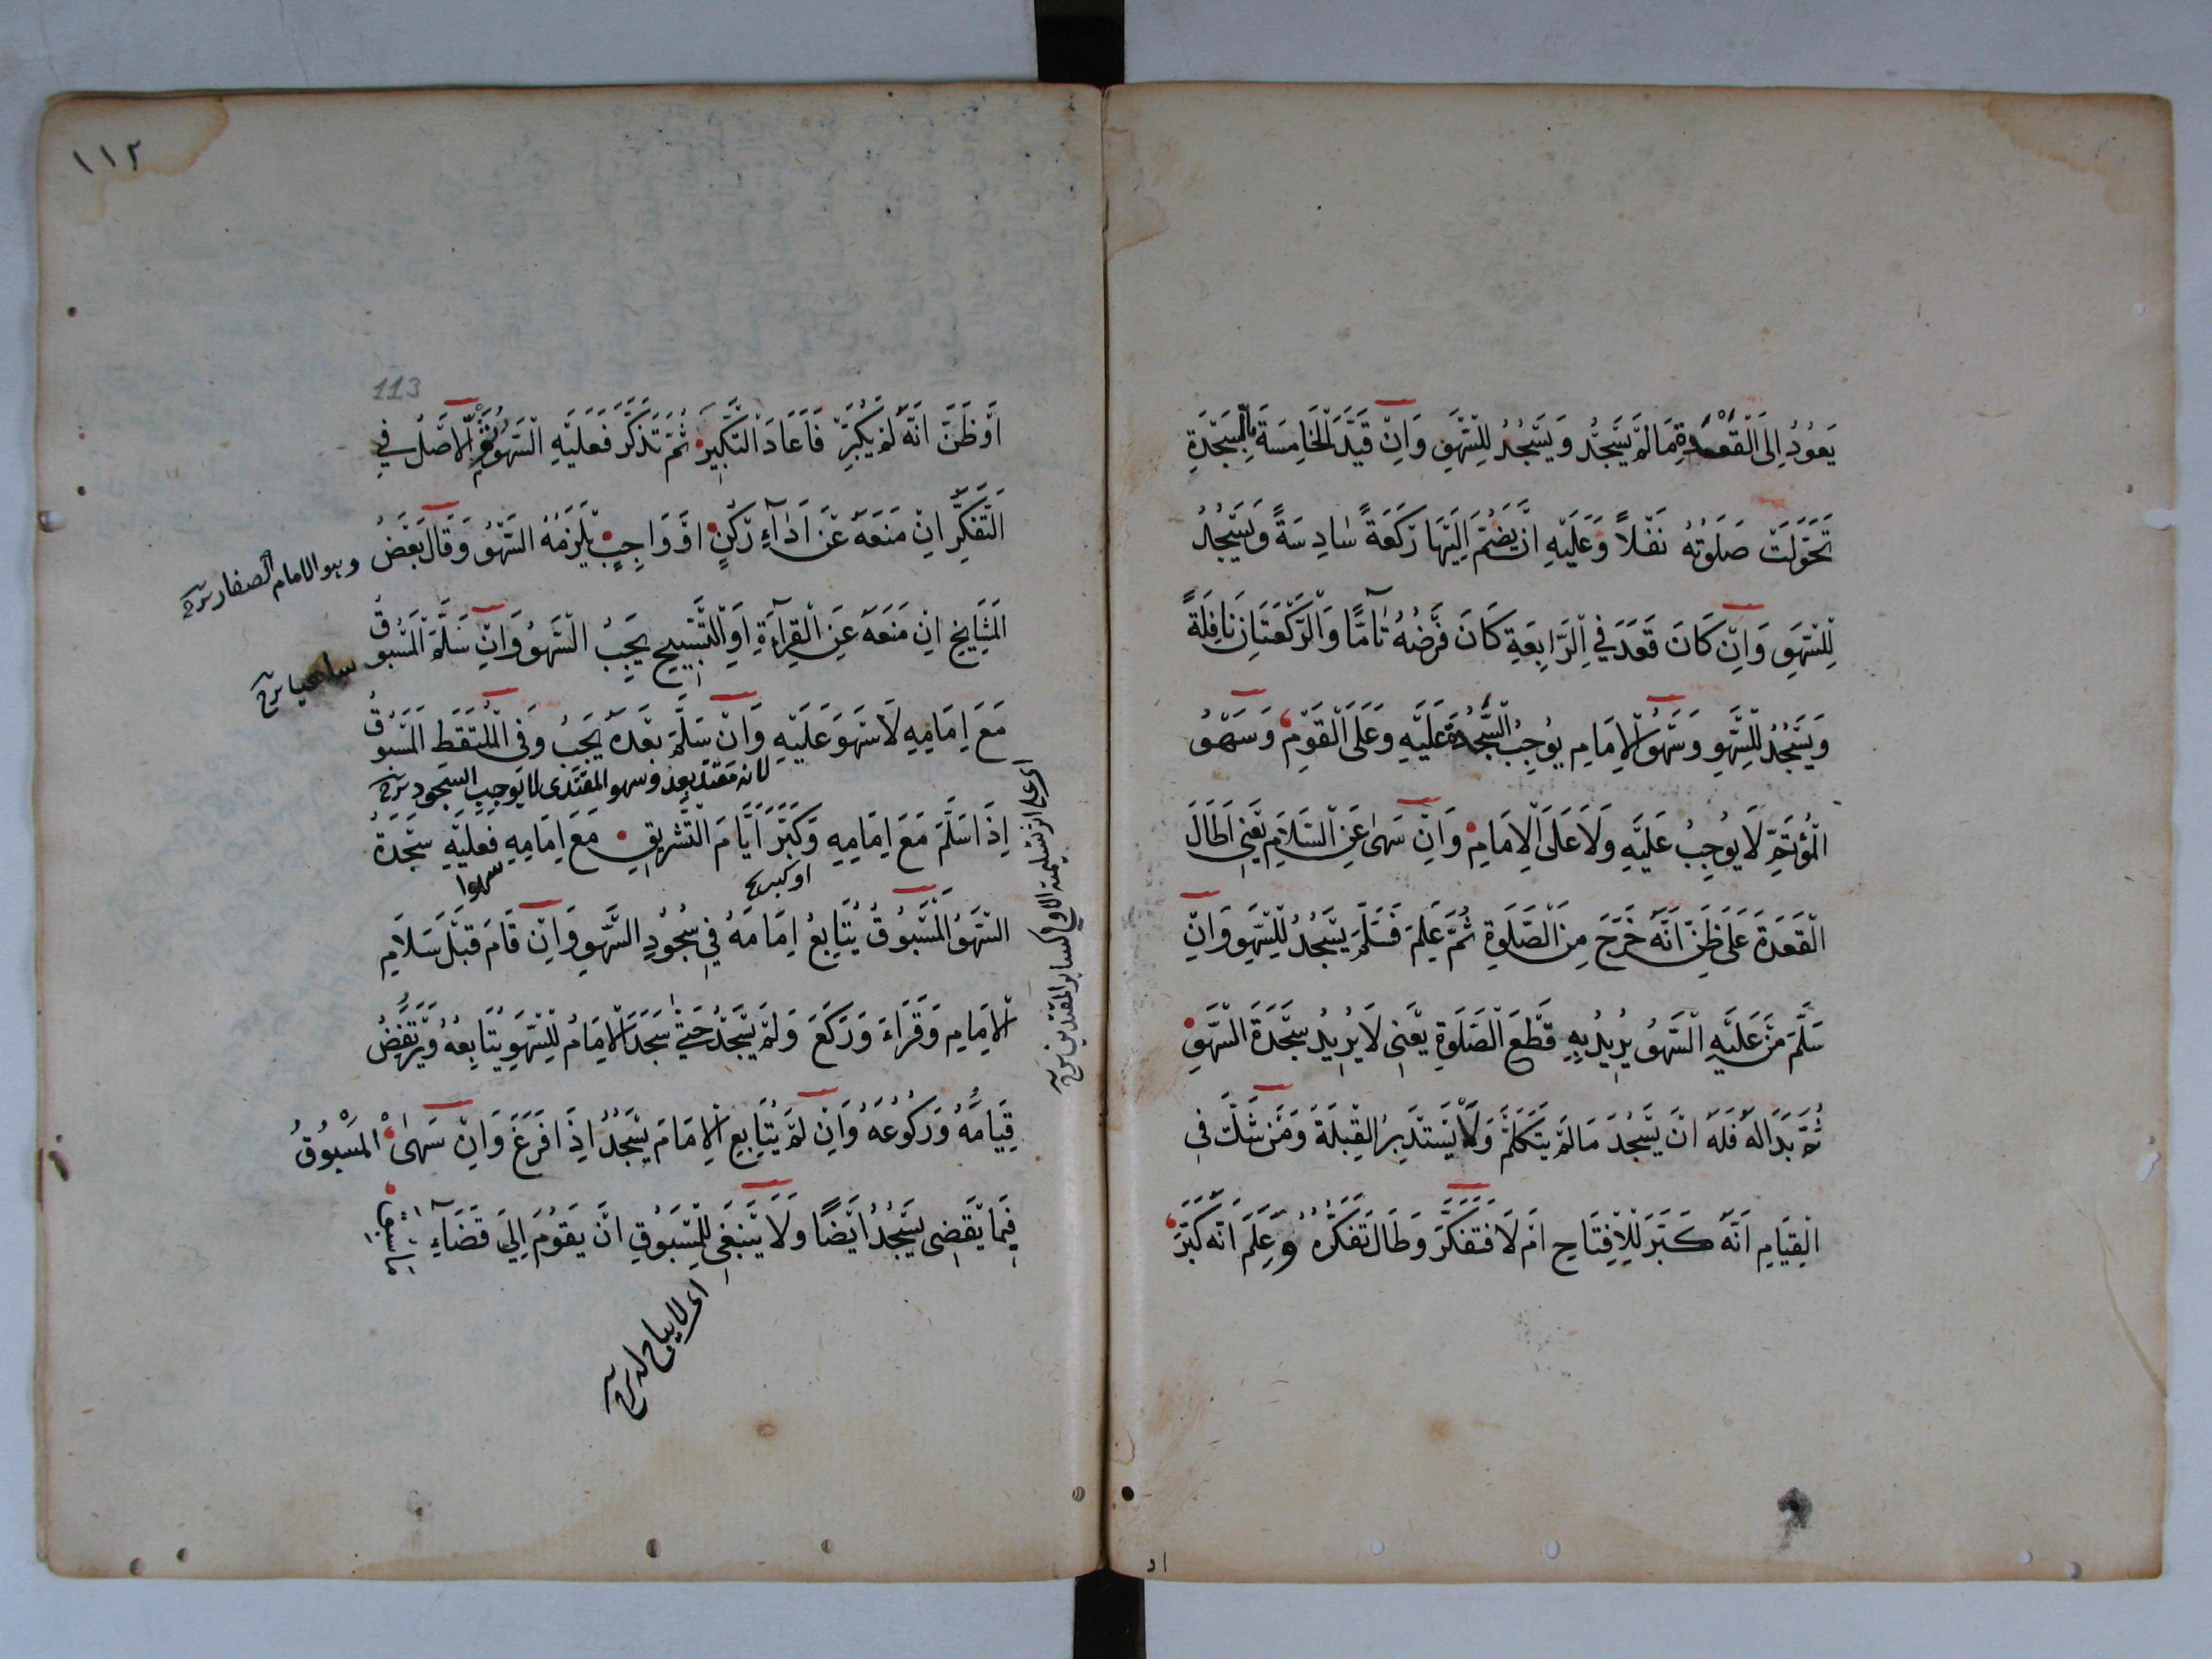 يَعُودُ اِلَى الْقَعْدَةِ مَا لَمْ يَسْجُدْ وَيَسْجُدُ لِلسَّهْوِ وَاِنْ قَيَّدَ الْخَامِسَةَ بِالسَّجْدَةِ
تَحَوَّلَتْ صَلٰوتُهُ نَفْلًا وَعَلَيْهِ اَنْ يَضُمَّ اِلَيْهَا رَكْعَةً سَادِسَةً وَيَسْجُدُ
لِلسَّهْوِ وَاِنْ كَانَ قَعَدَ فِي الرَّابِعَةِ كَانَ فَرْضُهُ تَآمًّا وَالرَّكْعَتَانِ نَافِلَةً
وَيَسْجُدُ لِلسَّهْوِ وَسَهْوُ الْاِمَامِ يُوجِبُ السَّجْدَةَ عَلَيْهِ وَعَلَى الْقَوْمِ وَسَهْوُ
الْمُؤْتَمِّ لَا يُوجِبُ عَلَيْهِ وَلَا عَلَى الْاِمَامِ وَاِنْ سَهٰى عَنِ السَّلَامِ يَعْنِي اَطَالَ
الْقَعْدَةَ عَلَى ظَنِّ اَنَّهُ خَرَجَ مِنَ الصَّلٰوةِ ثُمَّ عَلِمَ فَسَلَّمَ يَسْجُدُ لِلسَّهْوِ وَاِنْ
سَلَّمَ مَنْ عَلَيْهِ السَّهْوُ يُرِيدُ بِهِ قَطْعَ الصَّلٰوةِ يَعْنِي لَا يُرِيدُ سَجْدَةَ السَّهْوِ
ثُمَّ بَدَا لَهُ فَلَهُ اَنْ يَسْجُدَ مَا لَمْ يَتَكَلَّمْ وَلَا يَسْتَدْبِرُ الْقِبْلَةَ وَمَنْ شَكَّ فِي
الْقِيَامِ اَنَّهُ كَبَّرَ لِلْاِفْتِتَاحِ اَمْ لَا فَتَفَكَّرَ وَطَالَ تَفَكُّرُهُ وَعَلِمَ اَنَّهُ كَبَّرَ
١١٢
113
اَوْ ظَنَّ اَنَّهُ لَمْ يُكَبِّرْ فَاَعَادَ التَّكْبِيرَ ثُمَّ تَذَكَّرَ فَعَلَيْهِ السَّهْوُ ثُمَّ الْاَصْلُ فِي
التَّفَكُّرِ اِنْ مَنَعَهُ عَنْ اَدَآءِ رُكْنٍ اَوْ وَاجِبٍ يَلْزَمُهُ السَّهْوُ وَقَالَ بَعْضُ
وهو الامام الصفار شرح
الْمَشَايِخِ اِنْ مَنَعَهُ عَنِ الْقِرَآءَةِ اَوِ التَّسْبِيحِ يَجِبُ السَّهْوُ وَاِنْ سَلَّمَ الْمَسْبُوقُ
مَعَ اِمَامِهِ لَا سَهْوَ عَلَيْهِ وَاِنْ سَلَّمَ بَعْدَهُ يَجِبُ وَفِي الْمُلْتَقَطِ الْمَسْبُوقُ
لانه مقتد بعد وسهو المقتدى لا يوجب السجود شرح
اِذَا سَلَّمَ مَعَ اِمَامِهِ وَكَبَّرَ اَيَّامَ التَّشْرِيقِ مَعَ اِمَامِهِ فَعَلَيْهِ سَجْدَةُ
سهوا
السَّهْوِ الْمَسْبُوقُ يُتَابِعُ اِمَامَهُ فِي سُجُودِ السَّهْوِ وَاِنْ قَامَ قَبْلَ سَلَامِ
الْاِمَامِ وَقَرَاءَ وَرَكَعَ وَلَمْ يَسْجُدْ حَتّٰى سَجَدَ الْاِمَامُ لِلسَّهْوِ يُتَابِعُهُ وَيَرْتَفِضُ
قِيَامُهُ وَرُكُوعُهُ وَاِنْ لَمْ يُتَابِعِ الْاِمَامَ يَسْجُدُ اِذَا فَرَغَ وَاِنْ سَهٰى الْمَسْبُوقُ
فِيمَا يَقْضِى يَسْجُدُ اَيْضًا وَلَا يَنْبَغِي لِلْمَسْبُوقِ اَنْ يَقُومَ اِلَى قَضَآءِ
اى لا يباح له شرح